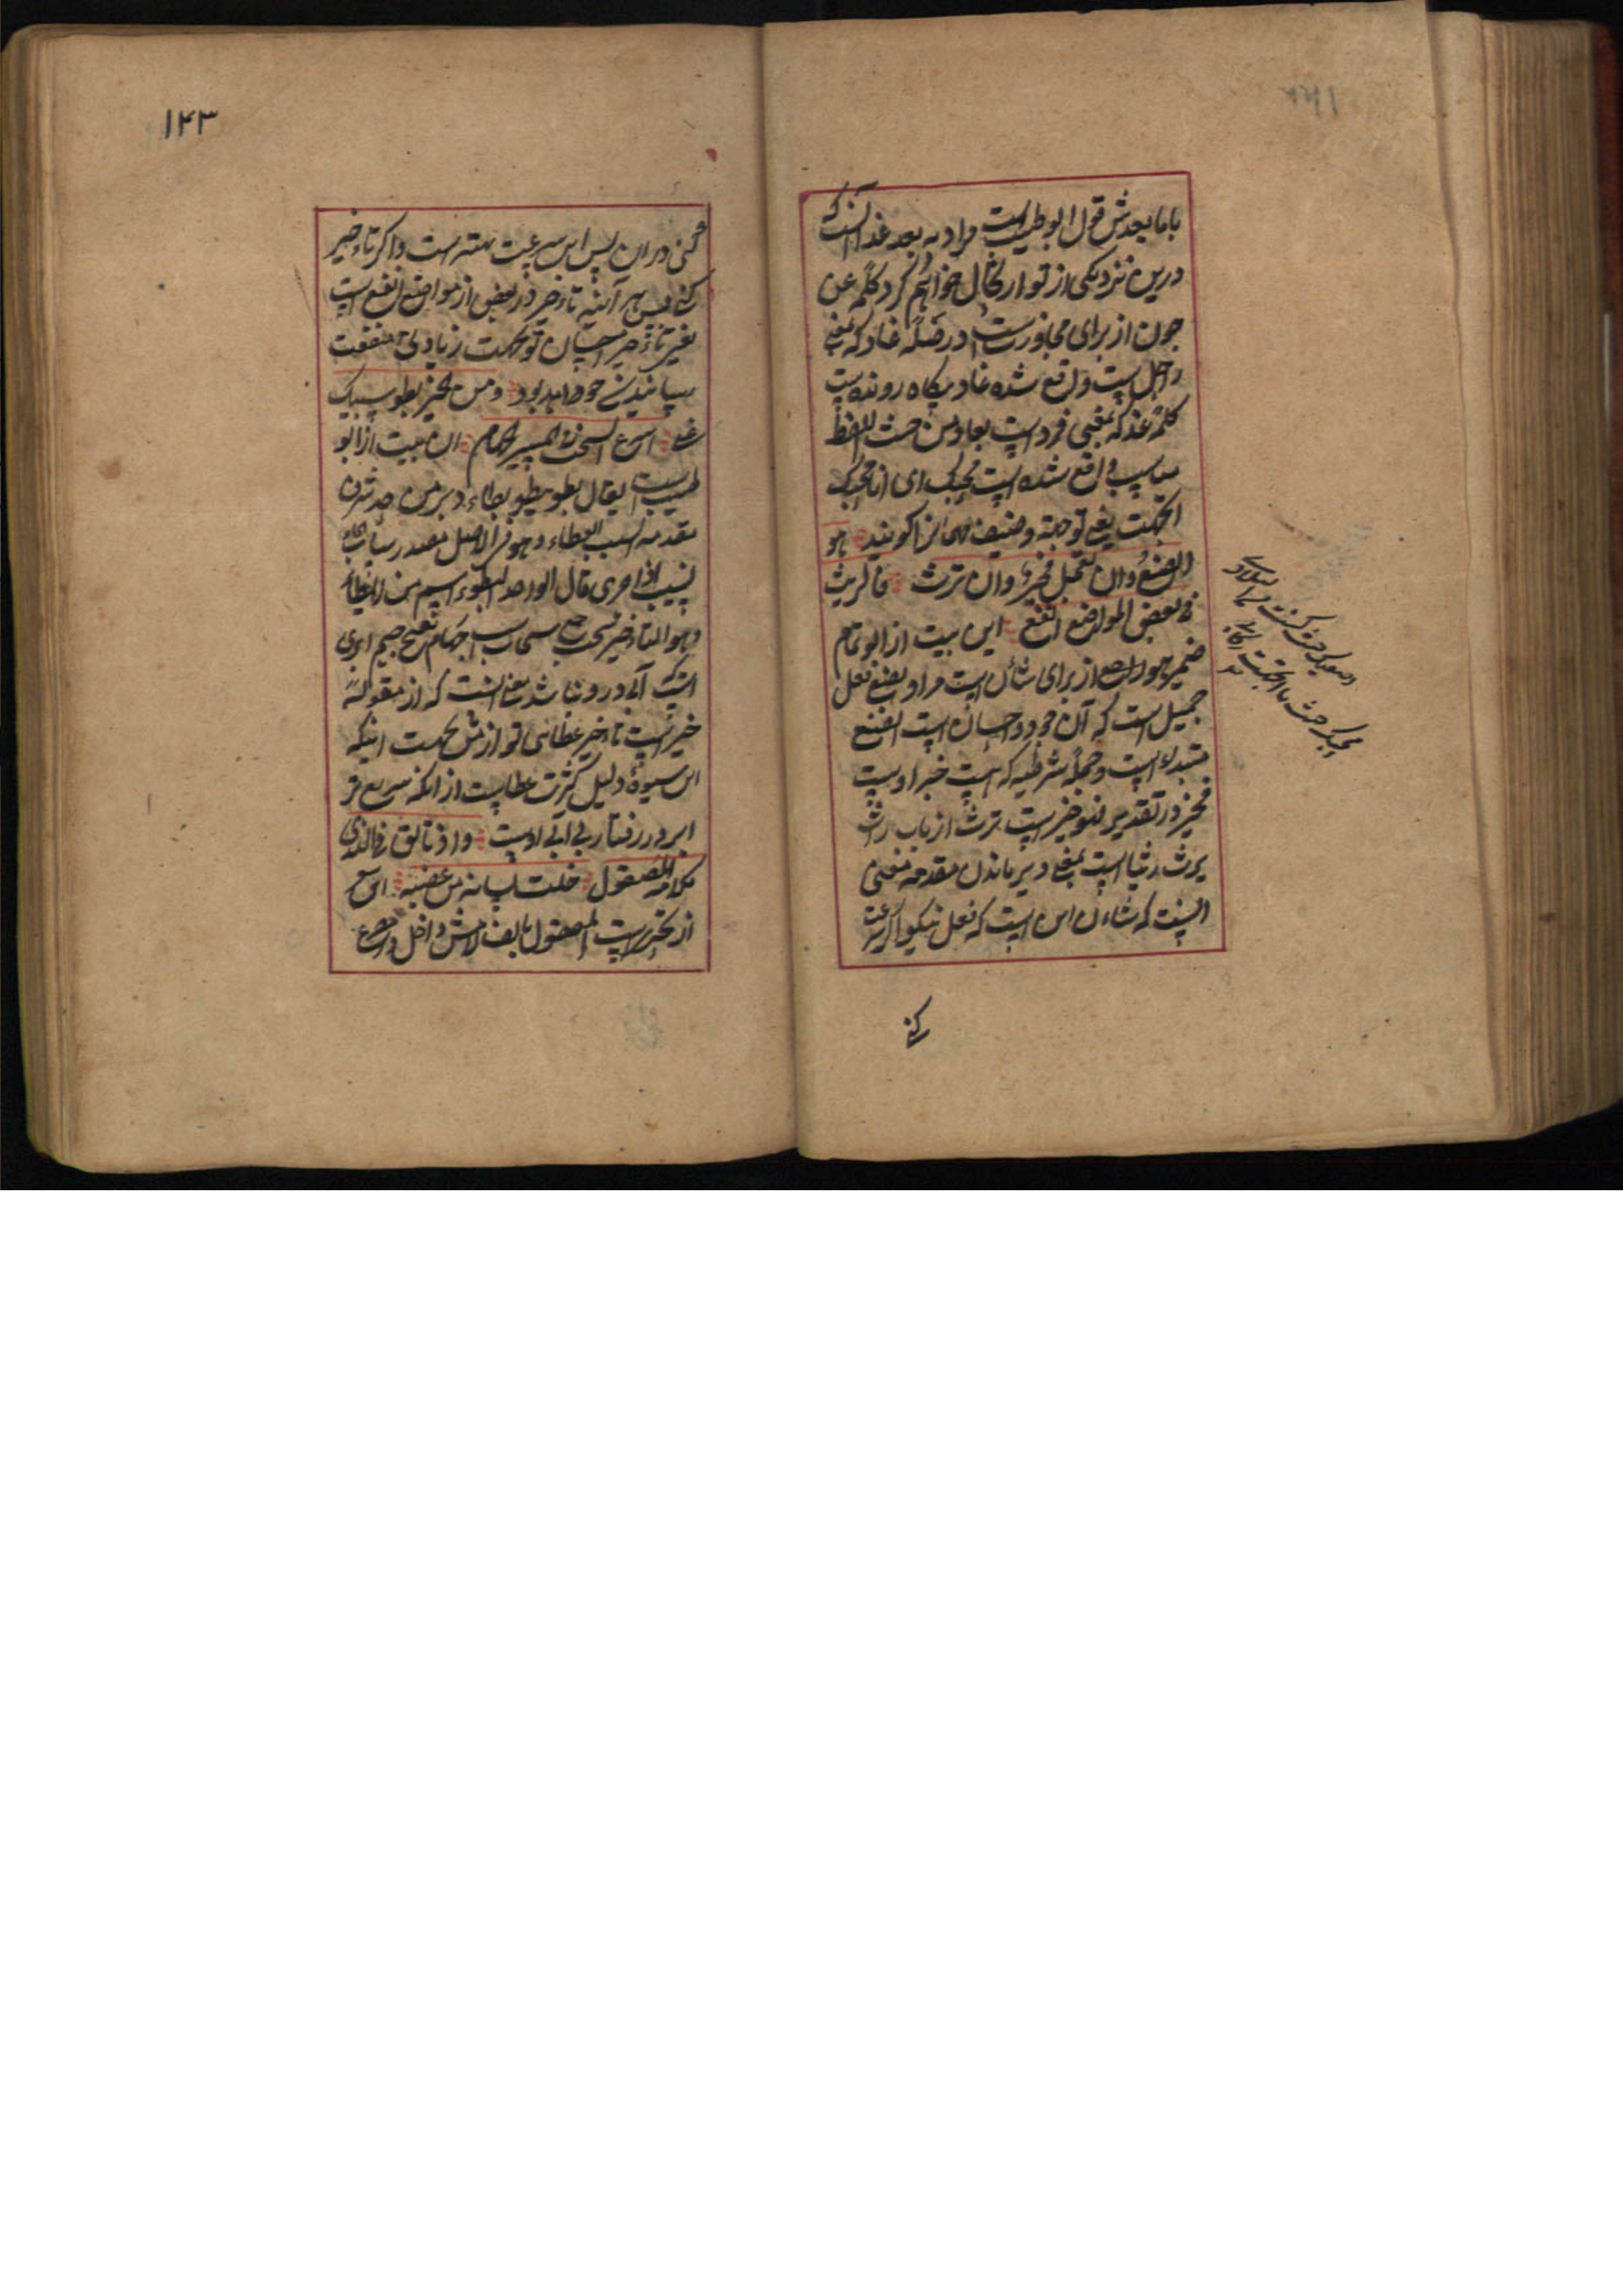 با ما بعدش قول ابو طیب است مراد به بعد غد آنست که
درین نزدیکی از تو ارتحال خواهم کرد کلمه عن
چون از برای مجاوزت است در صله غاد که بمعنی
راحل است واقع شده غاد پگاه رونده است
کلمه غد که بمعنی فردا است بغاد من حیث اللفظ
مناسب واقع شده است بحبک ای انا بحبک
اتجهت یعنی توجهت وضیف مهمانرا گویند هو
الصنع ان تعجل فخیر وان ترث فالریث
فی بعض المواضع انفع این بیت از ابو تمام
ضمیر هو از برای شأن است مراد بصنع فعل
جمیل است که آن جود و احسان است الصنع
مبتداء است و جمله شرطیه که هست خبر اوست
فخیر در تقدیر فهو خیر است ترث از باب راث
یرث ریثا است بمعنی دیر ماندن مقدمه معنی
اینست که شاءن این است که فعل نیکو اگر سرعت
کنی
۱۲۳
کنی در آن پس این سرعت بهتر است و اگر تاءخیر
کنی پس هر آینه تاءخیر در بعض از مواضع انفع است
یعنی تاءخیر احسان تو بجهت زیادتی منفعت
رسانیدنی خواهد بود ومن الخیر بطو سیبک
عنی اسرع السحب فی المسیر الجهام این بیت از ابو
طیب است یقال بطو یبطو بطاء دیر من حد شرف
مقدمه السیب العطاء وهو فی الاصل مصدر ساب الماء
یسیب اذا جری قال الواحد البطوء اسم من الابطاء
وهو التاءخیر سحب جمع سحاب جهام بفتح جیم ابری
است که آبی درو نباشد معنی آنست که از مقوله
خیر است تاءخیر عطای تو از من بجهت اینکه
این شیوه دلیل کثرت عطاست از آنکه سریع تر
ابر در رفتار بی آبی اوست واذ تالق فی الندی
کلامه المصقول خلت لسانه من عضبه این
از بحتری است المصقول بالف لامش داخل در مصرع